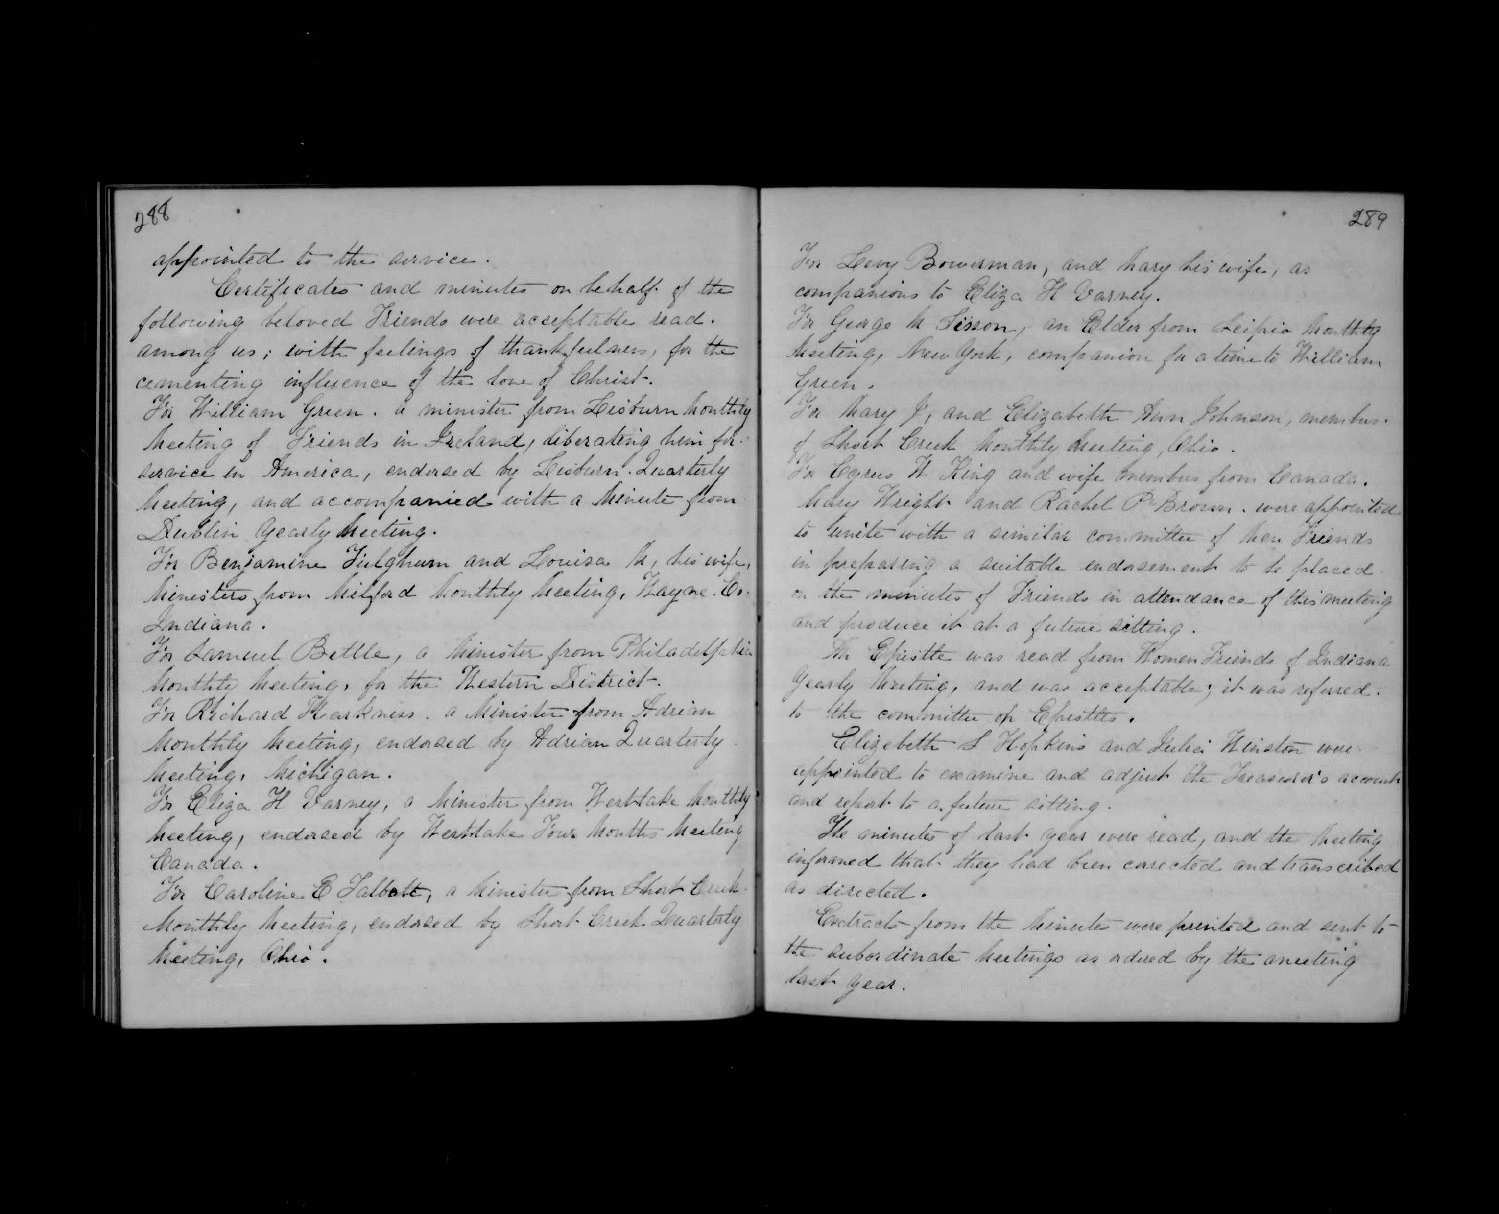 288
appointed to the service.
Certificates and minutes on behalf of the
following beloved Friends were acceptable read.
among us; with feelings of thankfulness, for the
cementing influence of the love of Christ.
For William Green. a minister from Lisburn Monthly
Meeting of Friends in Ireland, liberating him for
service in America, endorsed by Lisburn Quarterly
Meeting, and accompanied with a Minute from
Dublin Yearly Meeting.
For Benjamine Fulghum and Louisa M, his wife,
Ministers from Milford Monthly Meeting, Wayne. Co.
Indiana.
For Samuel Bettle, a Minister from Philadelphia
Monthly Meeting, for the Western District.
For Richard Harkness. a Minister from Adrian
Monthly Meeting, endorsed by Adrian Quarterly
Meeting, Michigan.
For Eliza H Varney, a Minister from Westlake Monthly
Meeting, endorsed by Westlake Four Months Meeting
Canada.
For Caroline E Talbott, a Minister from Short Creek
Monthly Meeting, endorsed by Short Creek Quarterly
Meeting, Ohio.
289
For Levy Bowerman, and Mary his wife, as
companions to Eliza H Varney.
For George M Sisson, an Elder from Scipio Monthly
Meeting, New York, companion for a time to William
Green.
For Mary J, and Elizabeth Ann Johnson, members
of Short Creek Monthly Meeting, Ohio.
For Cyrus W King and wife members from Canada.
Mary Wright and Rachel P Brown. were appointed
to unite with a similar committee of Men Friends
in preparing a suitable endorsement to be placed
on the minutes of Friends in attendance of this meeting
and produce it at a future sitting.
An Epistle was read from Women Friends of Indiana
Yearly Meeting, and was acceptable; it was referred
to the committee on Epistles.
Elizabeth L Hopkins and Julia Winston were
appointed to examine and adjust the Treasurer's account
and report to a future sitting.
The minutes of last year were read, and the Meeting
informed that they had been corected and transcribed
as directed.
Extracts from the Minutes were printed and sent to
the subordinate Meetings as ordered by the meeting
last year.